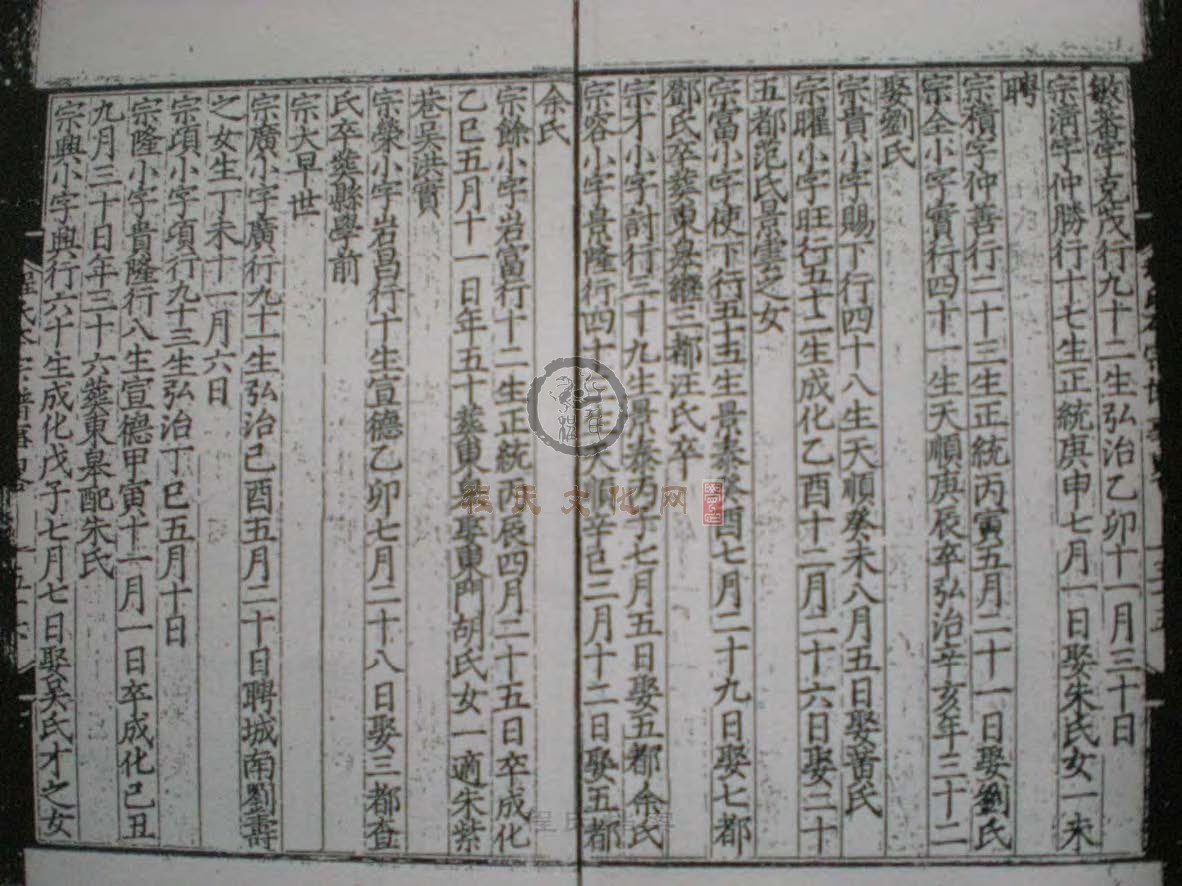 敏蕃字克茂行九十二生弘治乙卯十一月三十日
宗淸字仲勝行十七生正統庚申七月一日娶朱氏女一未
聘
宗積字仲善行二十三生正統丙寅五月二十一日娶劉氏
宗全小字實行四十一生天順庚辰卒弘治辛亥年三十二
娶劉氏
宗貴小字賜下行四十八生天順癸未八月五日娶黃氏
宗曜小字旺行五十二生成化乙酉十二月二十六日娶二十
五都范氏景雲之女
宗富小字使下行五十五生景泰癸酉七月二十九日娶七都
鄧氏卒葬東皋繼三都汪氏卒
宗才小字討行三十九生景泰丙子七月五日娶五都余氏
宗容小字景隆行四十生天順辛巳三月十二日娶五都
余氏
宗餘小字岩富行十二生正統丙辰四月二十五日卒成化
乙巳五月十一日年五十葬東皋娶東門胡氏女一適朱紫
巷吴洪實
宗榮小字岩昌行十生宣德乙卯七月二十八日娶三都查
氏卒葬縣學前
宗大早世
宗廣小字廣行九十一生弘治己酉五月二十日聘城南劉壽
之女生丁未十一月六日
宗項小字項行九十三生弘治丁巳五月十日
宗隆小字貴隆行八生宣德甲寅十一月一日卒成化己丑
九月三十日年三十六葬東皋配朱氏
宗興小字興行六十生成化戊子七月七日娶吴氏才之女
程氏文化网